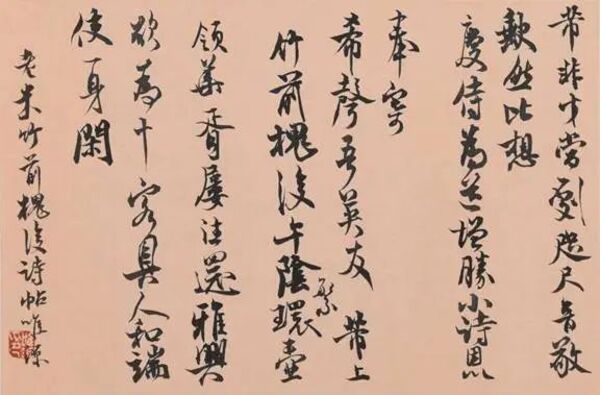 芾非才當劇咫尺音敬
缺然比想
慶侍為道增勝小詩因以
奉寄
希聲吾英友 芾上
竹前槐後午陰環繁壺
領華胥屢往還雅興
欲為十客具人和端
使一身閑
老米竹前槐後詩帖唯